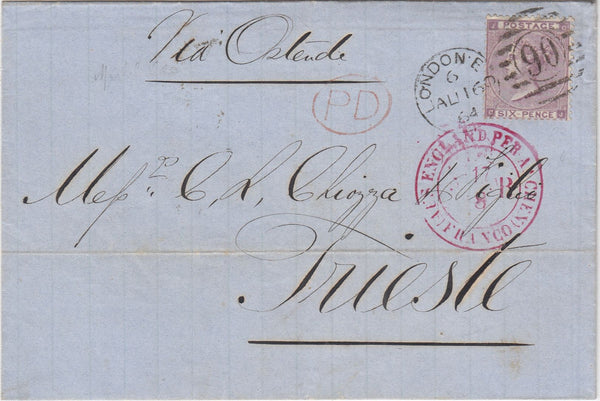 Via Ostende
POSTAGE
SIX-PENCE
90
LONDON·E
6
AU 16
64
PD
ENGLAND PER AACHEN
FRANCO
Messrs C. L. Chiozza & Figlio
Trieste